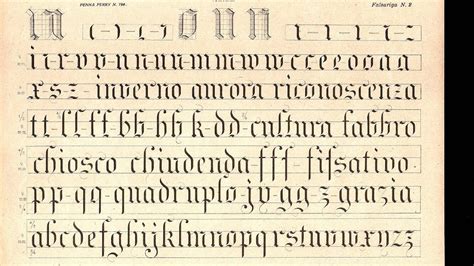 PENNA PERRY N. 700. Falsariga N. 2
in o u n
i-r-v-v-n-u-n-u-m-m-w-c-c-e-e-o-o-a-a
x-s-z- inverno aurora riconoscenza
tt-ſſ-ff-bb-hh-k-dd-cultura fabbro
chiosco chiudenda fff-fiſsativo
pp-qq-quadruplo-jv-gg-z-grazia
abcdefghijklmnopqrstuvwxyz